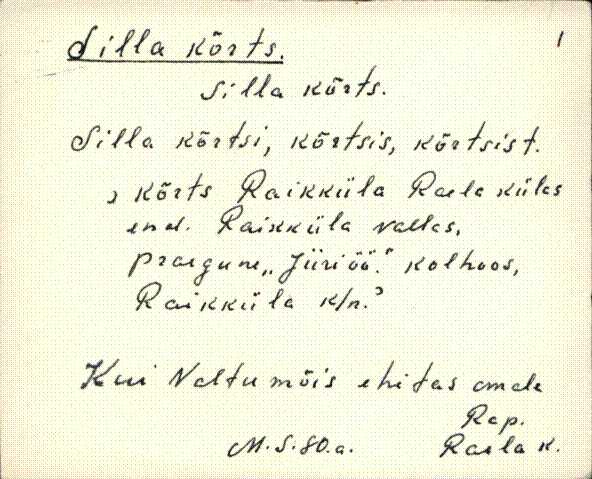 Silla kõrts.
1
Silla kõrts.
Silla kõrtsi, kõrtsis, kõrtsist.
, kõrts Raikküla Raela külas
end. Raikküla vallas,
praegune „Jüriöö." kolhoos,
Raikküla k/n.'
Kui Valtu mõis ehitas omale
Rap.
M.S.80.a. Raela k.